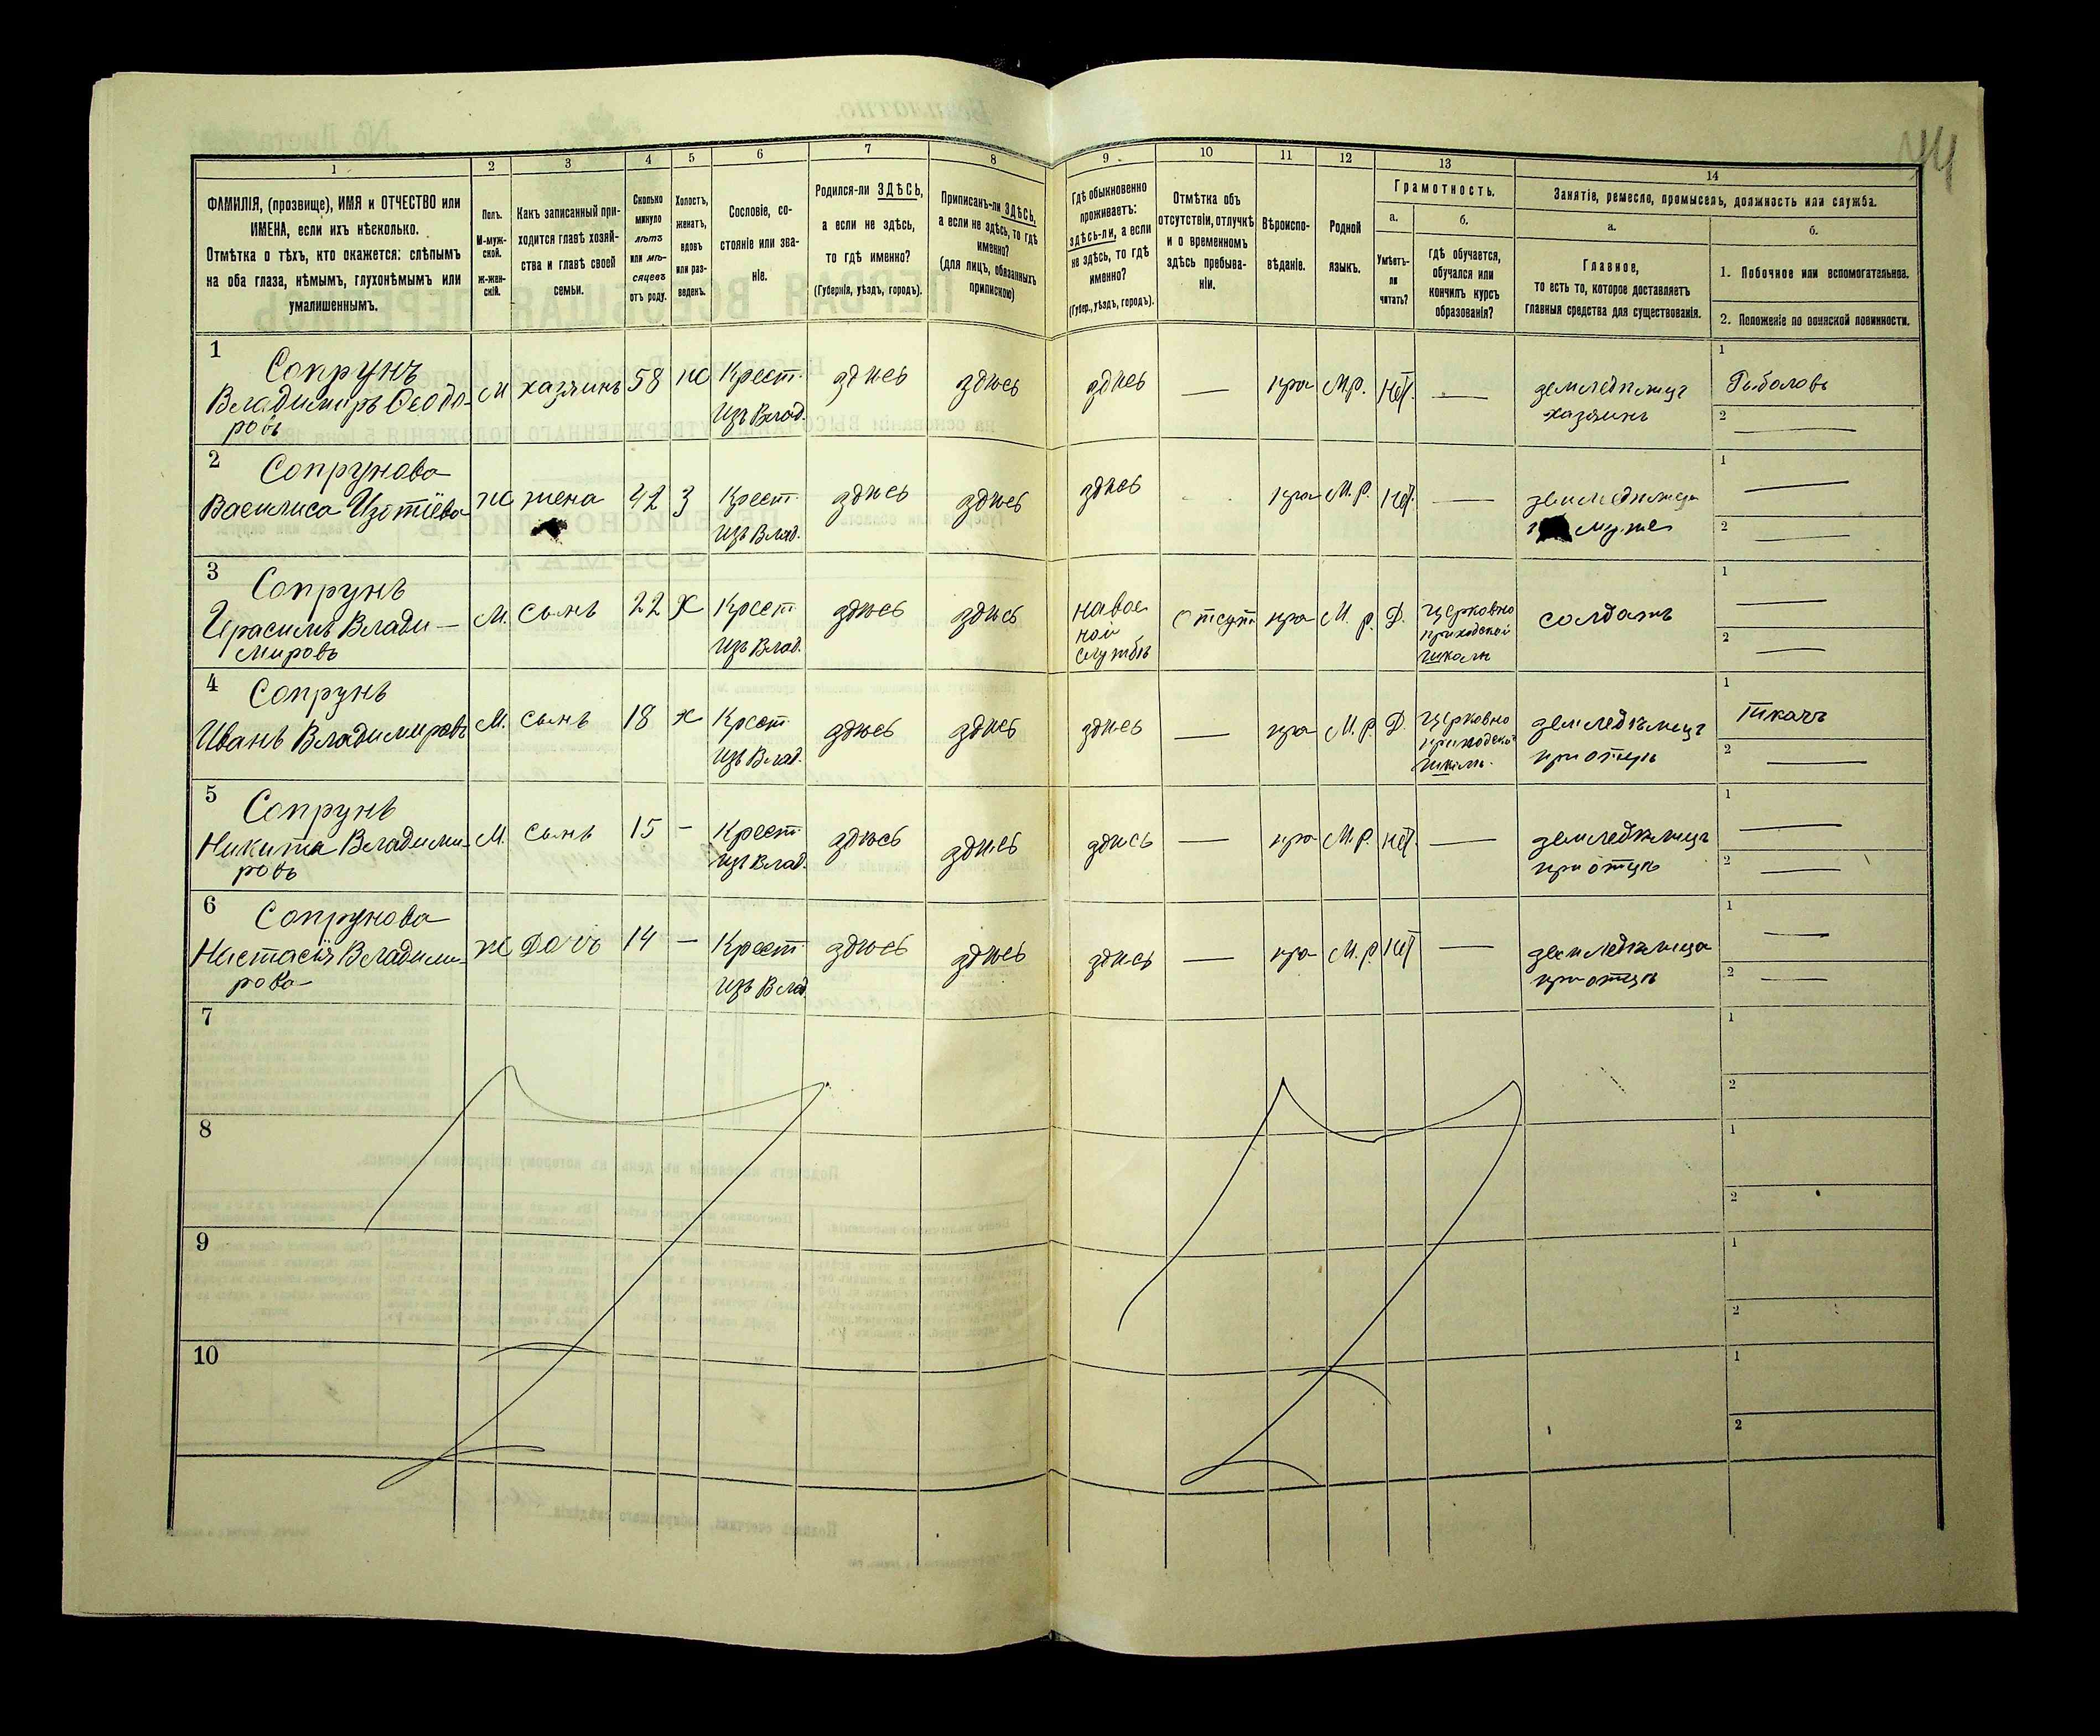 44
1 2 3 4 5 6 7 8 9 10 11 12 13 14
ФАМИЛІЯ, (прозвище), ИМЯ и ОТЧЕСТВО или
ИМЕНА, если ихъ нѣсколько.
Отмѣтка о тѣхъ, кто окажется: слѣпымъ
на оба глаза, нѣмымъ, глухонѣмымъ или
умалишеннымъ.
Полъ.
М-муж-
ской.
Ж-жен-
скій.
Какъ записанный при-
ходится главѣ хозяй-
ства и главѣ своей
семьи.
Сколько
минуло
лѣтъ
или мѣ-
сяцевъ
отъ роду.
Холостъ,
женатъ,
вдовъ
или раз-
веденъ.
Сословіе, со-
стояніе или зва-
ніе.
Родился-ли ЗДѢСЬ,
а если не здѣсь,
то гдѣ именно?
(Губернія, уѣздъ, городъ).
Приписанъ-ли ЗДѢСЬ,
а если не здѣсь, то гдѣ
именно?
(для лицъ, обязанныхъ
припискою)
Гдѣ обыкновенно
проживаетъ:
здѣсь-ли, а если
не здѣсь, то гдѣ
именно?
(Губер., уѣздъ, городъ).
Отмѣтка объ
отсутствіи, отлучкѣ
и о временномъ
здѣсь пребыва-
ніи.
Вѣроиспо-
вѣданіе.
Родной
языкъ.
Грамотность.
а.
Умѣетъ-
ли
читать?
б.
гдѣ обучается,
обучался или
кончилъ курсъ
образованія?
Занятіе, ремесло, промыселъ, должность или служба.
а.
Главное,
то есть то, которое доставляетъ
главныя средства для существованія.
б.
1. Побочное или вспомогательное.
2. Положеніе по воинской повинности.
1
Сопрунъ
Владимиръ Ѳеодо-
ровъ
М хазяинъ 58 ж Крест.
изъ Влад.
здѣсь здѣсь здѣсь — пра М.р. нѣт. —
земледѣлецъ
хазяинъ
1
Рыболовъ
2
2
Сопрунова
Василиса Изотіева
ж жена 42 З Крест.
изъ Влад.
здѣсь здѣсь здѣсь пра М.р. нѣт. —
земледѣлица
муже
1
2
3
Сопрунъ
Герасимъ Влади-
мировъ
М. сынъ 22 Х Крест.
изъ Влад.
здѣсь здѣсь
на вое
ной
службѣ
отсут. пра М.р. Д.
церковно
приходской
школы
солдатъ
1
2
4
Сопрунъ
Иванъ Владимировъ
М. сынъ 18 х Крест.
изъ Влад.
здѣсь здѣсь здѣсь — пра М.р. Д.
церковно
приходской
школы.
земледѣлецъ
при отцѣ
1
ткачъ
2
5
Сопрунъ
Никита Владими-
ровъ
М. сынъ 15 — Крест.
изъ Влад.
здѣсь здѣсь здѣсь — пра М.р. нѣт. —
земледѣлецъ
при отцѣ
1
2
6
Сопрунова
Настасія Владими-
рова
ж Дочь 14 — Крест.
изъ Влад.
здѣсь здѣсь здѣсь — пра М.р. нѣт —
земледѣлица
при отцѣ
1
2
7
1
2
8
1
2
9
1
2
10
1
2